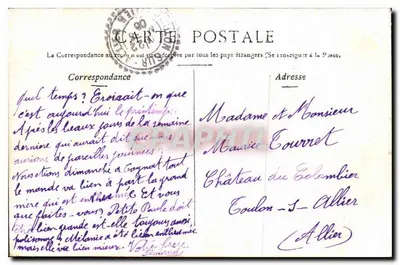 CARTE POSTALE
La Correspondance au recto n'est pas acceptée par tous les pays étrangers (Se renseigner à la Poste).
Correspondance
Adresse
quel temps? Croirait-on que
c'est aujourd'hui le printemps.
Après les beaux jours de la semaine
dernière qui aurait dit que nous
aurions de pareilles journées.
Nous étions dimanche à tout
le monde va bien à part la grand
mère qui est enrhumée. Et vous
que faites-vous? Petite Paule doit
être bien grande est-elle toujours aussi
polissonne? Mélanie a été bien enrhumée
mais elle va bien mieux. Votre frère
Madame et Monsieur
Maurice Tourret
Château du Colombier
Toulon-s-Allier
(Allier)